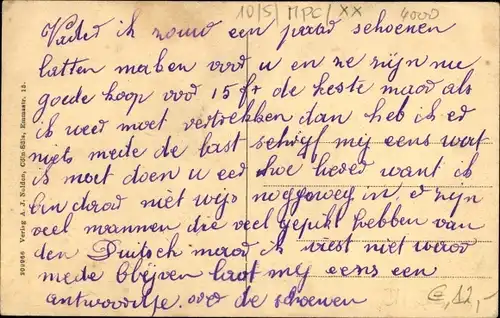 10/5 MPC/XX 4000
Vader ik zouw een paar schoenen
latten maken voor u en ze zijn nu
goede koop voor 15 fr de beste maar als
ik weer moet vertrekken dan heb ik er
niets mede de last schrijf mij eens wat
ik moet doen u eed hoe want ik
ben daar niet wijs noggeweg in er zijn
veel mannen die veel gepikt hebben van
den Duitsch maar ik niet waar
mede blijven laat mij eens een
antwoordtje over de schoenen
€,12,-
202966 Verlag A. J. Nolden, Cöln-Sülz, Emmastr. 12.